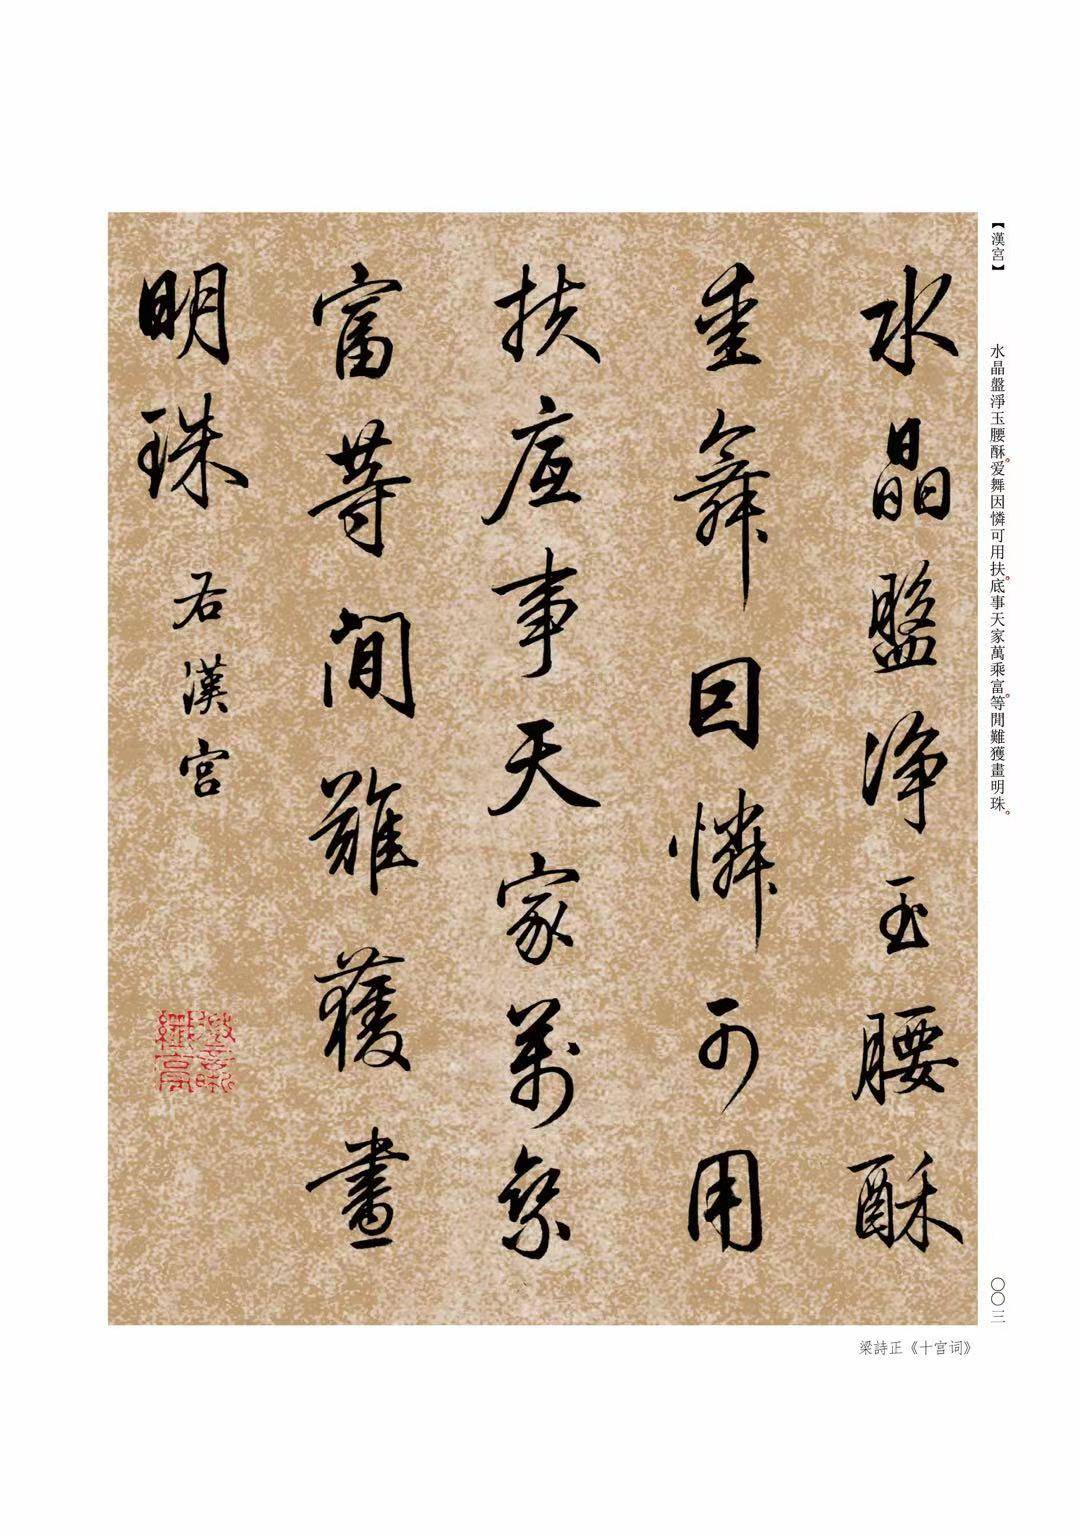 【漢宮】
水晶盤淨玉腰酥。爱舞因憐可用扶。底事天家萬乘富。等閒難獲畫明珠。
水晶盤净玉腰酥
愛舞因憐可用
扶底事天家萬乘
富等閒難獲畫
明珠
右漢宮
〇〇三
梁詩正《十宫词》